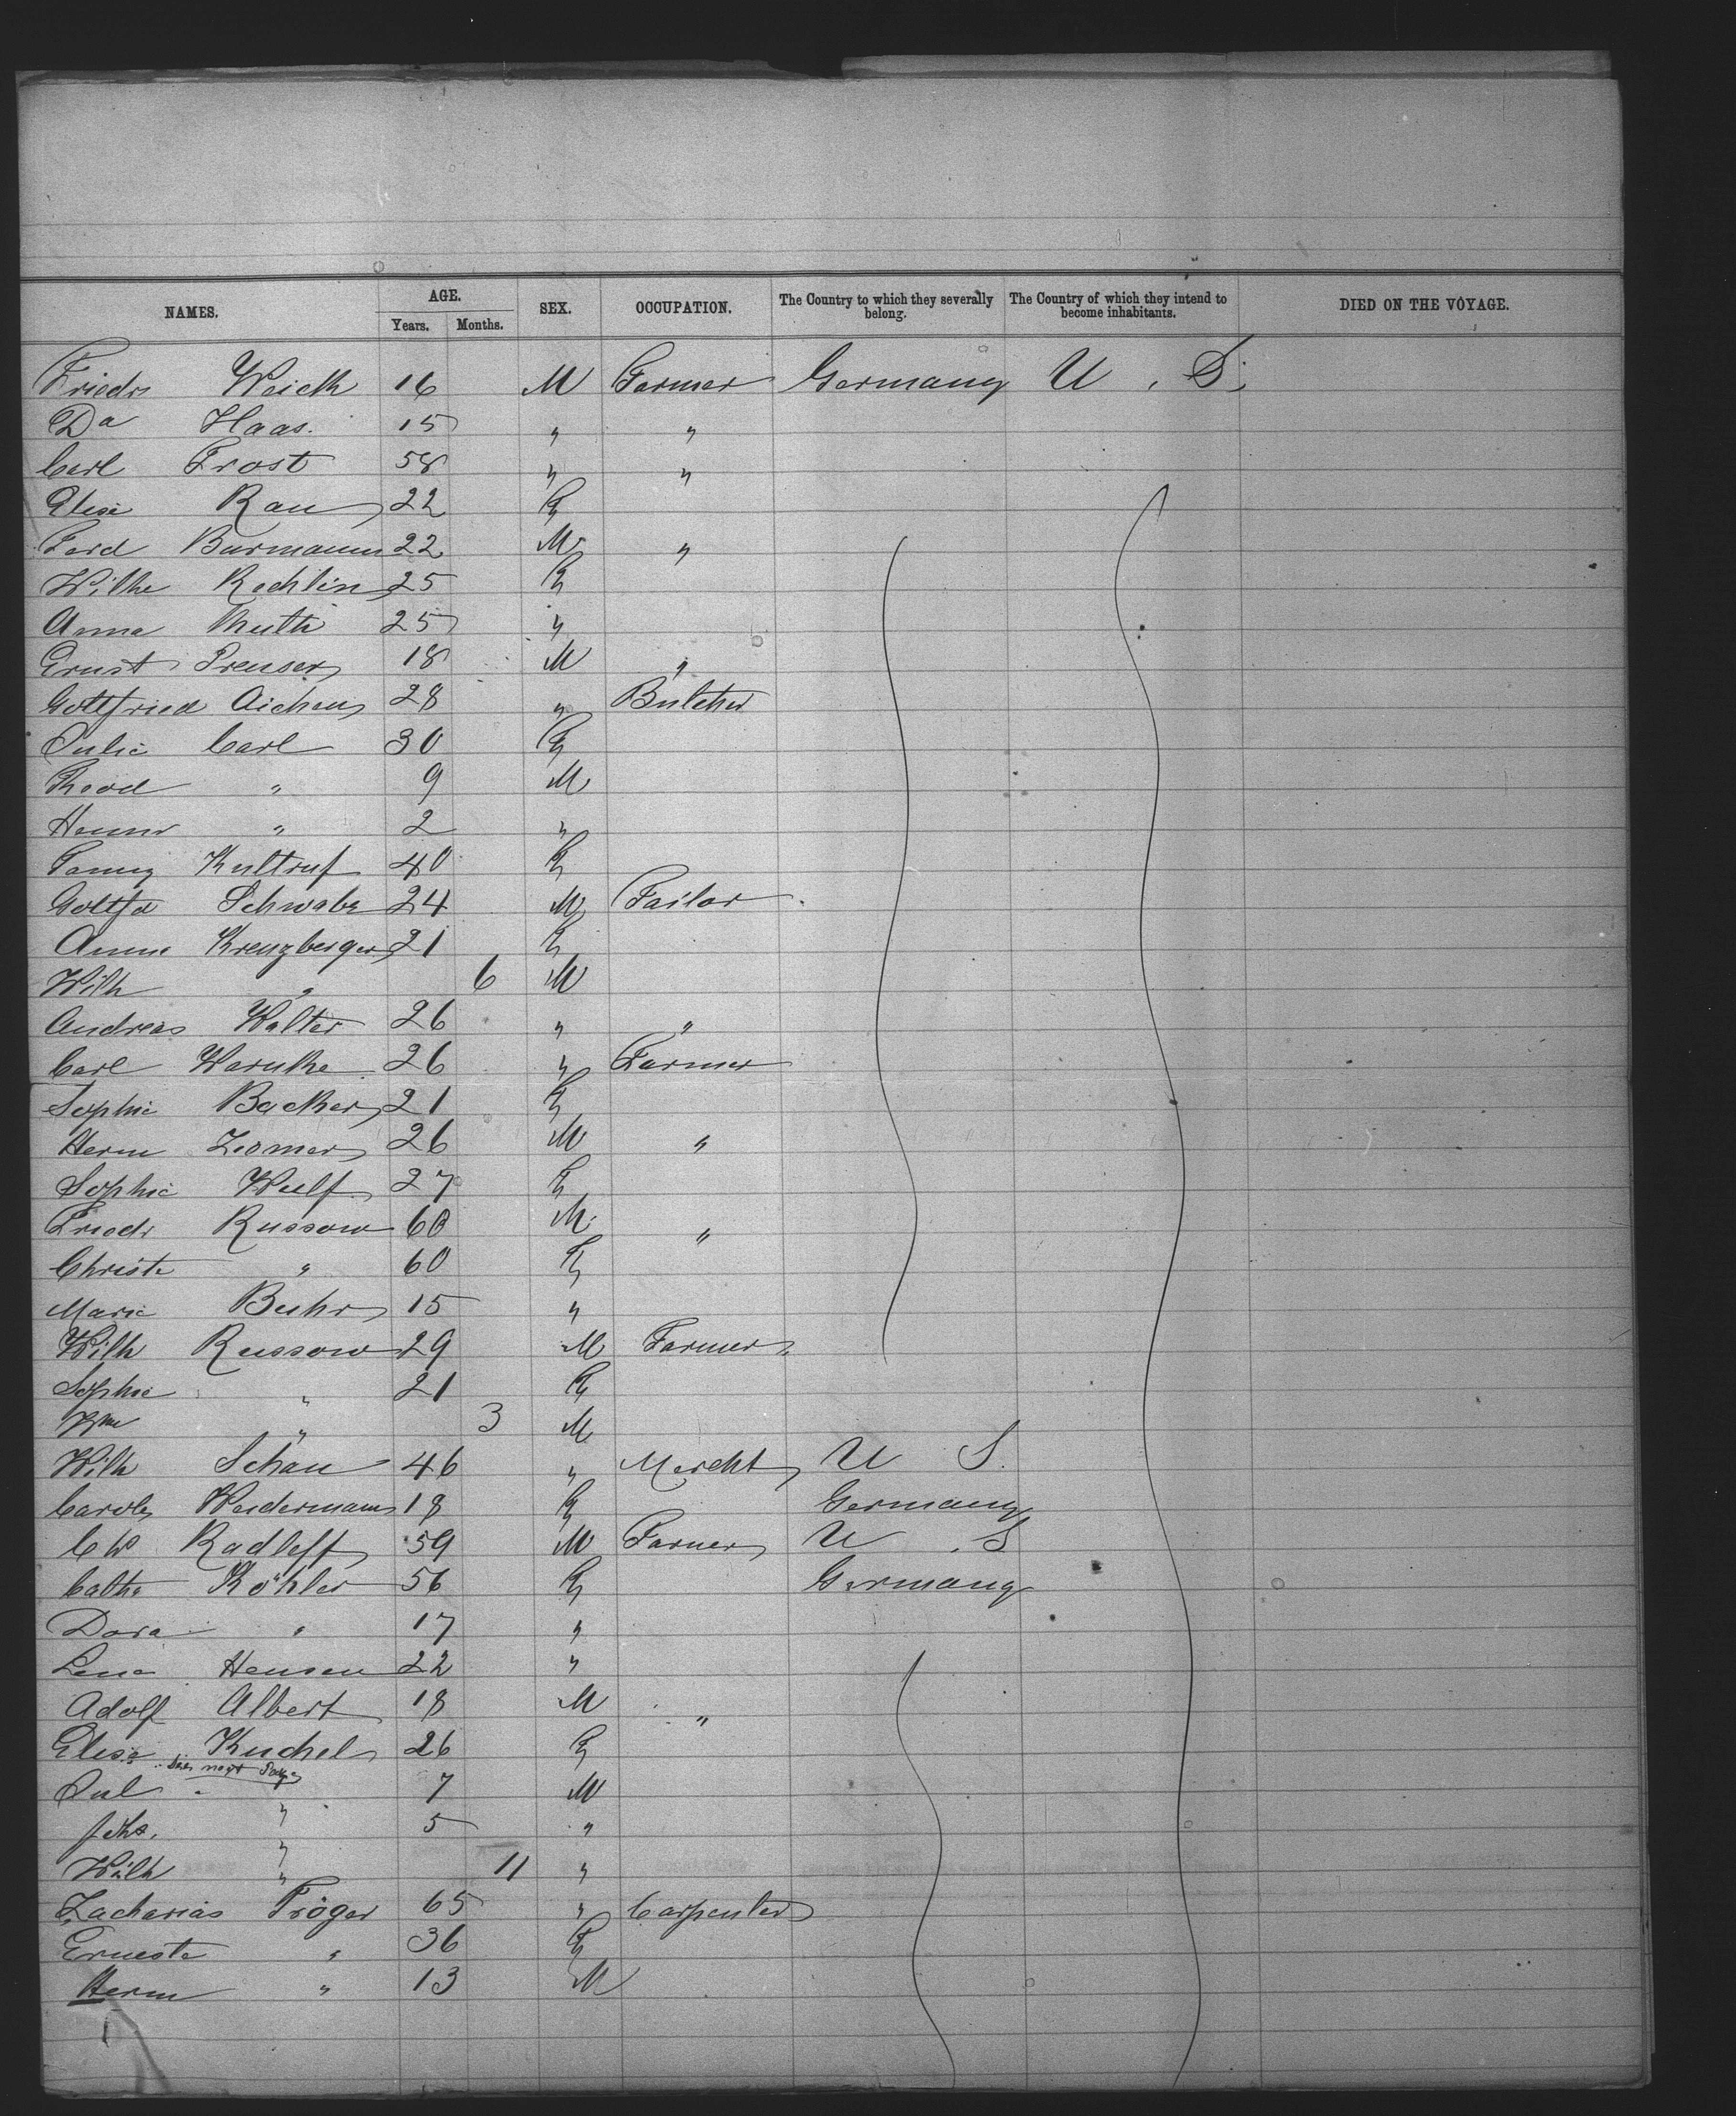 NAMES. AGE. SEX. OCCUPATION. The Country to which they severally belong. The Country of which they intend to become inhabitants. DIED ON THE VOYAGE.
Years. Months.
Friedr Weick 16 M Farmer Germany U. S.
Da Haas. 15 " "
Carl Frost 58 " "
Elise Rau 22 F
Ferd Burmann 22 M "
Wilhe Rechlin 25 F
Anna 25 "
Ernst Preuser 18 M "
Gottfried Aichen 28 " Butcher
Julie Carl 30 F
" 9 M
" 2 "
Fanny Kultruf 40 F
Gottfd Schwabe 24 M Tailor
Anna Kreuzberger 21 F
Wilh " 6 M
Andreas Walter 26 " "
Carl Warnke 26 " Farmer
Sophie Backer 21 F
Herm 26 M "
Sophie Wulf 27 F
Friedr Russow 60 M "
Christe " 60 F
Marie Buhr 15 "
Wilh Russow 29 M Farmer
Sophie " 21 F
Wm " 3 M
Wilh Schau 46 " Mercht U S.
Carole Weidermann 18 F Germany
C W Radleff 59 M Farmer U. S
Cathe Köhler 56 F Germany
Dora " 17 "
Lena Hensen 22 "
Adolf Albert 18 M "
Elise Kuchel 26 F
See next Page
Jul " 7 M
Johs. " 5 "
Wilh " 11 "
Zacharias Tröger 65 " Carpenter
Erneste " 36 F
Herm " 13 M